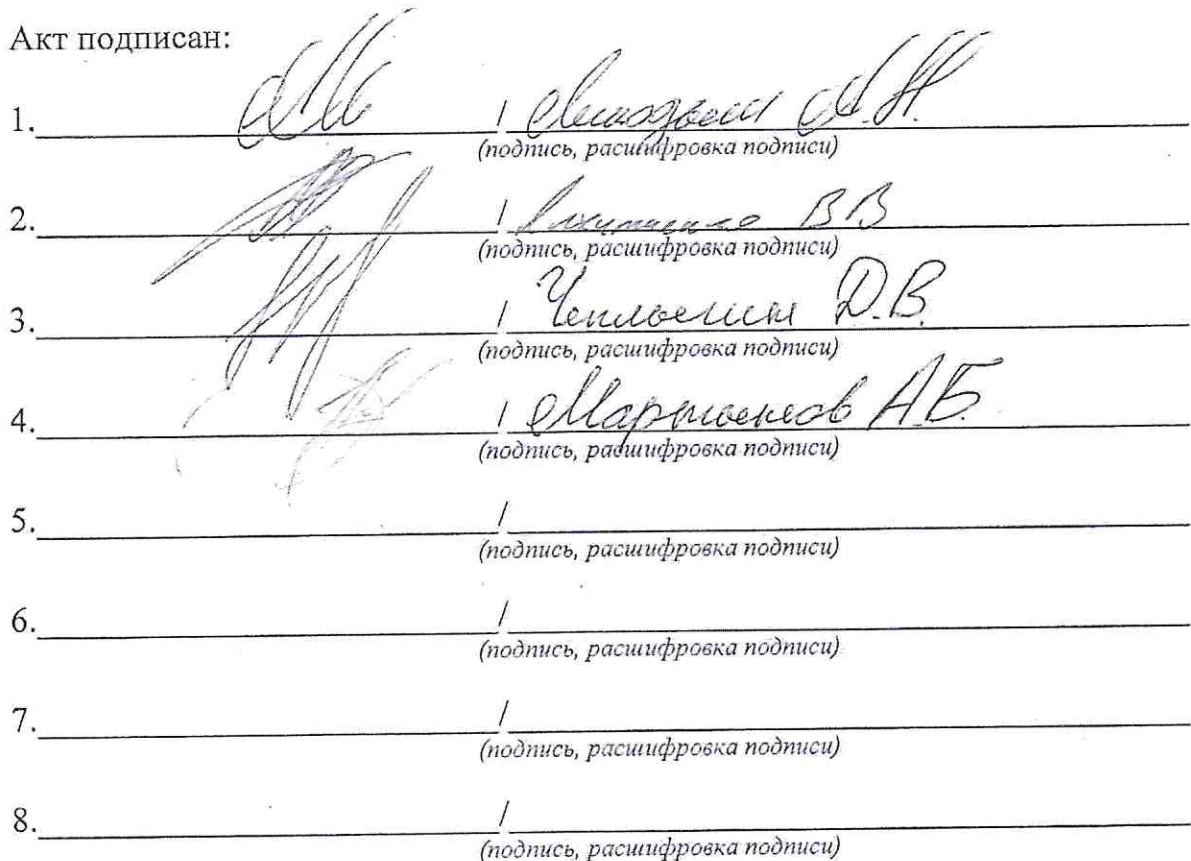 Акт подписан:
1. / А.Н.
(подпись, расшифровка подписи)
2. / В В
(подпись, расшифровка подписи)
3. / Д.В.
(подпись, расшифровка подписи)
4. / Мартынов А.Б.
(подпись, расшифровка подписи)
5. /
(подпись, расшифровка подписи)
6. /
(подпись, расшифровка подписи)
7. /
(подпись, расшифровка подписи)
8. /
(подпись, расшифровка подписи)